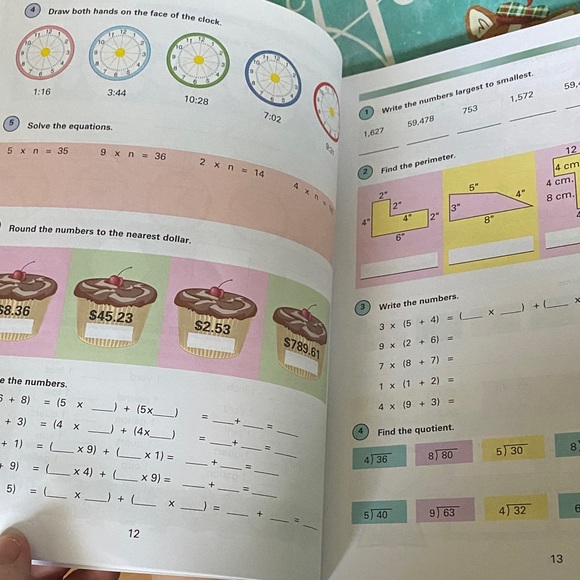 4 Draw both hands on the face of the clock.
1:16 3:44 10:28 7:02
5 Solve the equations.
5 x n = 35 9 x n = 36 2 x n = 14 4 x n =
Round the numbers to the nearest dollar.
$8.36 $45.23 $2.53 $789.61
e the numbers.
+ 8) = (5 x ___) + (5x___) = ___+___=___
+ 3) = (4 x ___) + (4x___) = ___+___=___
+ 1) = (___ x 9) + (___ x 1) = ___+___=___
+ 9) = (___ x 4) + (___ x 9) = ___+___=___
5) = (___ x ___) + (___ x ___) = ___+___=___
12
1 Write the numbers largest to smallest.
1,627 59,478 753 1,572 59,
2 Find the perimeter.
2" 2" 4" 4" 2" 6"
5" 3" 4" 8"
12
4 cm
4 cm.
8 cm.
3 Write the numbers.
3 x (5 + 4) = (___ x ___) + (___ x
9 x (2 + 6) =
7 x (8 + 7) =
1 x (1 + 2) =
4 x (9 + 3) =
4 Find the quotient.
4)36 8)80 5)30 8)
5)40 9)63 4)32 6
13